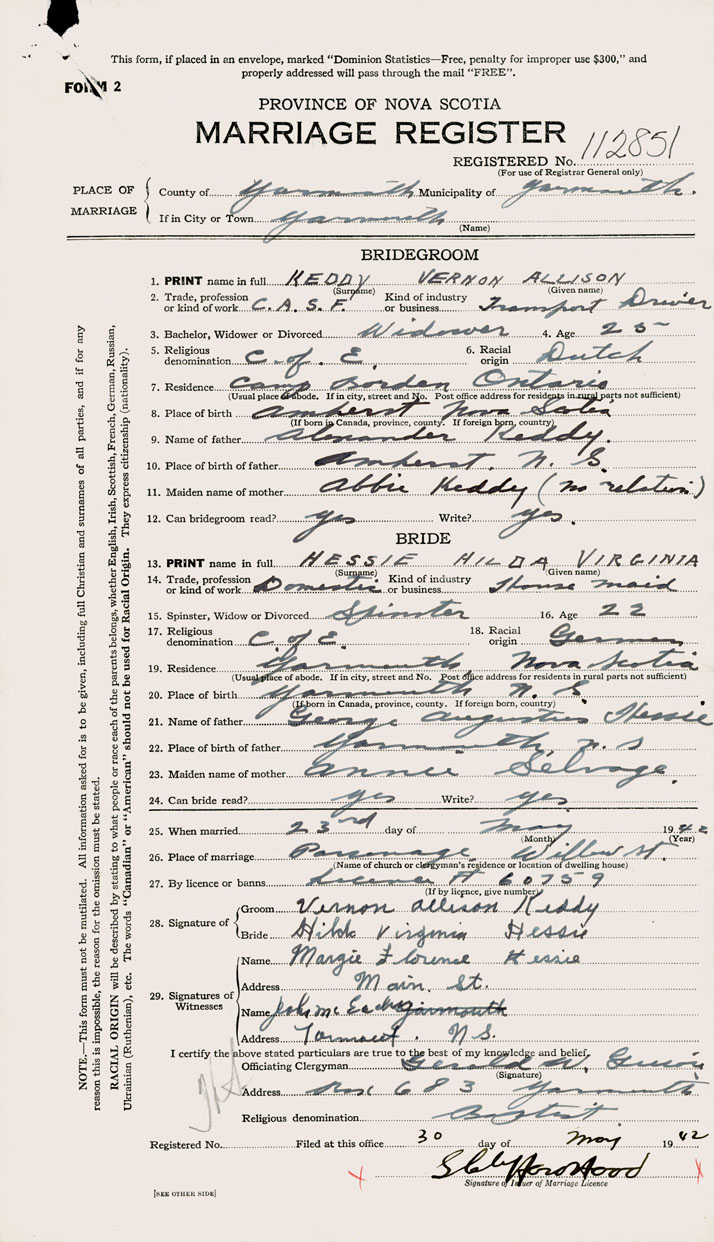 This form, if placed in an envelope, marked "Dominion Statistics—Free, penalty for improper use $300," and
properly addressed will pass through the mail "FREE".
FORM 2
PROVINCE OF NOVA SCOTIA
MARRIAGE REGISTER
REGISTERED No. 112851
(For use of Registrar General only)
PLACE OF MARRIAGE
County of Yarmouth Municipality of Yarmouth.
If in City or Town Yarmouth
(Name)
BRIDEGROOM
1. PRINT name in full KEDDY VERNON ALLISON
(Surname) (Given name)
2. Trade, profession or kind of work C.A.S.F. Kind of industry or business Transport Driver
3. Bachelor, Widower or Divorced Widower 4. Age 25
5. Religious denomination C. of E. 6. Racial origin Dutch
7. Residence Camp Borden Ontario
(Usual place of abode. If in city, street and No. Post office address for residents in rural parts not sufficient)
8. Place of birth Amherst Nova Scotia
(If born in Canada, province, county. If foreign born, country)
9. Name of father Alexander Keddy.
10. Place of birth of father Amherst. N. S.
11. Maiden name of mother Abbie Keddy (no relation)
12. Can bridegroom read? yes Write? yes.
BRIDE
13. PRINT name in full HESSIE HILDA VIRGINIA
(Surname) (Given name)
14. Trade, profession or kind of work Domestic Kind of industry or business House maid
15. Spinster, Widow or Divorced Spinster 16. Age 22
17. Religious denomination C. of E. 18. Racial origin German
19. Residence Yarmouth, Nova Scotia
(Usual place of abode. If in city, street and No. Post office address for residents in rural parts not sufficient)
20. Place of birth Yarmouth N. S
(If born in Canada, province, county. If foreign born, country)
21. Name of father George Augustus Hessie
22. Place of birth of father Yarmouth, n. s
23. Maiden name of mother Annie Selvage.
24. Can bride read? yes Write? yes
25. When married 23rd day of May 1942
(Month) (Year)
26. Place of marriage Parsonage, Willow St.
(Name of church or clergyman's residence or location of dwelling house)
27. By licence or banns Licence # 60759
(If by licence, give number)
28. Signature of
Groom Vernon Allison Keddy
Bride Hilda Virginia Hessie
29. Signatures of Witnesses
Name Margie Florence Hessie
Address Main. St.
Name John Yarmouth
Address Yarmouth. N.S.
I certify the above stated particulars are true to the best of my knowledge and belief,
Officiating Clergyman Gerald W.
(Signature)
Address Box 683 Yarmouth
Religious denomination Baptist
Registered No. Filed at this office 30 day of May 1942
Signature of Issuer of Marriage Licence
[SEE OTHER SIDE]
NOTE.—This form must not be mutilated. All information asked for is to be given, including full Christian and surnames of all parties, and if for any
reason this is impossible, the reason for the omission must be stated.
RACIAL ORIGIN will be described by stating to what people or race each of the parents belongs, whether English, Irish, Scottish, French, German, Russian,
Ukrainian (Ruthenian), etc. The words "Canadian" or "American" should not be used for Racial Origin. They express citizenship (nationality).